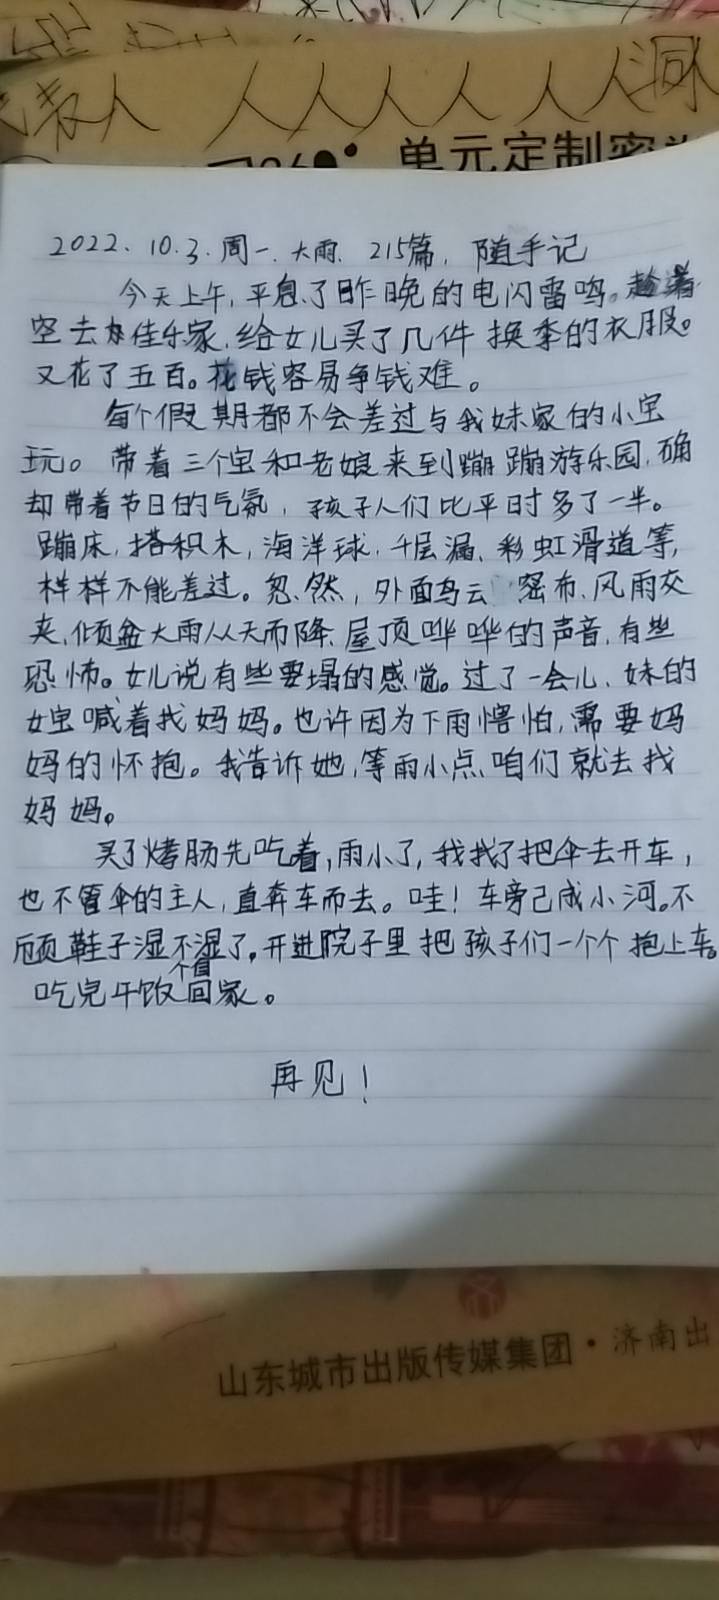 表人 人人人人人人洞
单元定制密
2022.10.3.周一.大雨.215篇.随手记
今天上午,平息了昨晚的电闪雷鸣。趁着
空去佳乐家,给女儿买了几件换季的衣服。
又花了五百。花钱容易争钱难。
每个假期都不会差过与我妹家的小宝
玩。带着三个宝和老娘来到蹦蹦游乐园,确
却带着节日的气氛,孩子人们比平时多了一半。
蹦床,搭积木,海洋球,千层漏,彩虹滑道等,
样样不能差过。忽然,外面乌云密布,风雨交
夹,倾盆大雨从天而降,屋顶哗哗的声音,有些
恐怖。女儿说有些要塌的感觉。过了一会儿,妹的
女宝喊着找妈妈。也许因为下雨害怕,需要妈
妈的怀抱。我告诉她,等雨小点,咱们就去找
妈妈。
买了烤肠先吃着,雨小了,我找了把伞去开车,
也不管伞的主人,直奔车而去。哇!车旁已成小河。不
顾鞋子湿不湿了。开进院子里把孩子们一个个抱上车。
吃完午饭个自回家。
再见!
山东城市出版传媒集团·济南出